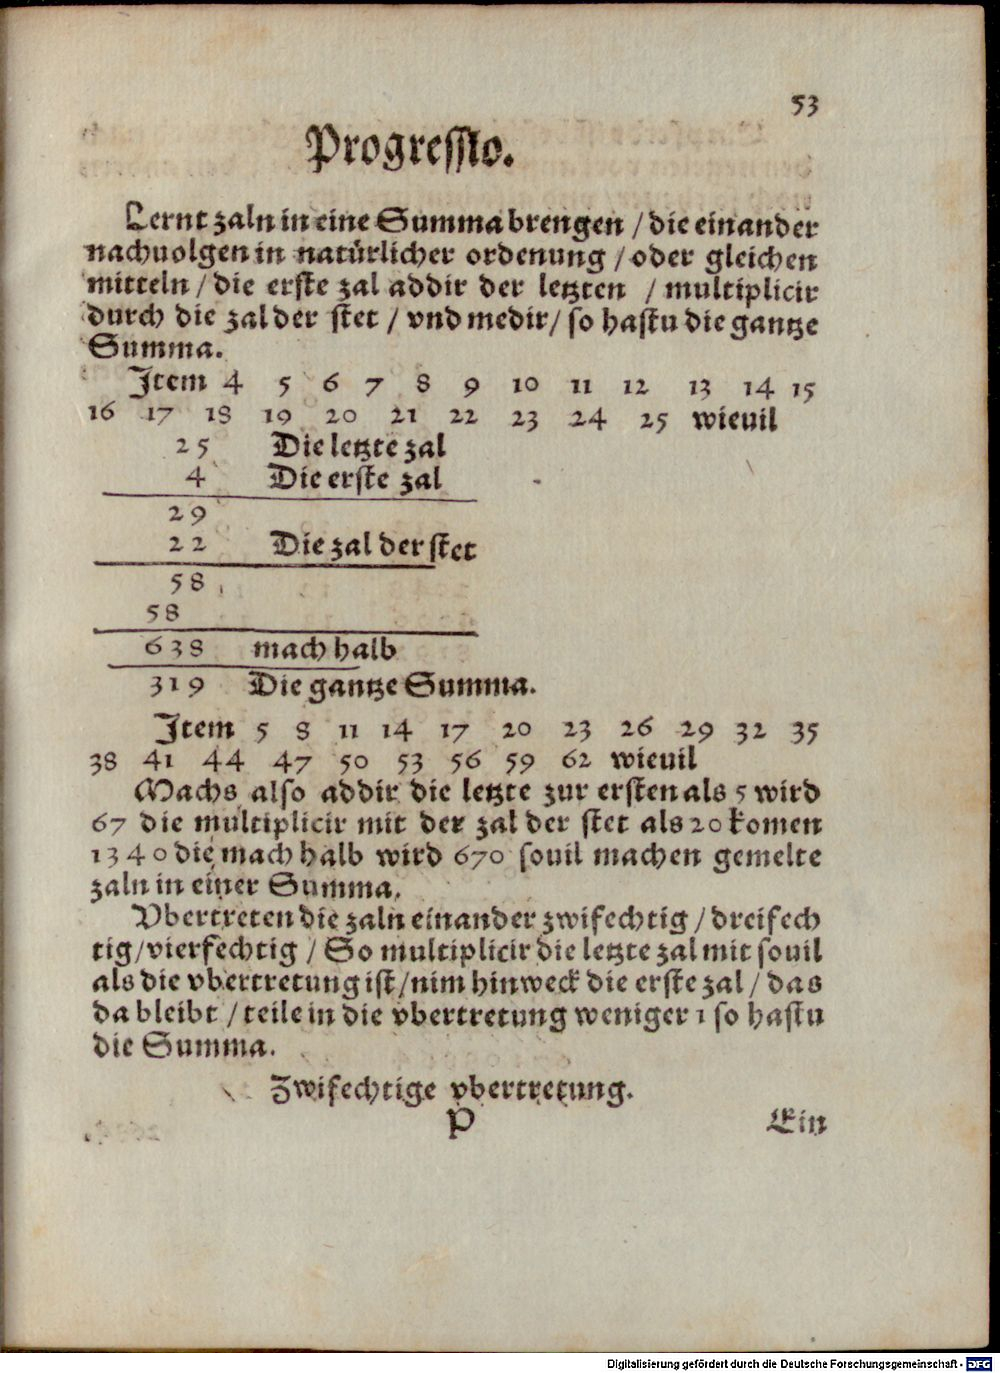 53
Progressio.
Lernt zaln in eine Summa brengen / die einander
nachuolgen in natürlicher ordenung / oder gleichen
mitteln / die erste zal addir der letzten / multiplicir
durch die zal der stet / vnd medir / so hastu die gantze
Summa.
Item 4 5 6 7 8 9 10 11 12 13 14 15
16 17 18 19 20 21 22 23 24 25 wieuil
25 Die letzte zal
4 Die erste zal
29
22 Die zal der stet
58
58
638 mach halb
319 Die gantze Summa.
Item 5 8 11 14 17 20 23 26 29 32 35
38 41 44 47 50 53 56 59 62 wieuil
Machs also addir die letzte zur ersten als 5 wird
67 die multiplicir mit der zal der stet als 20 komen
1340 die mach halb wird 670 souil machen gemelte
zaln in einer Summa.
Vbertreten die zaln einander zwifechtig / dreifech
tig / vierfechtig / So multiplicir die letzte zal mit souil
als die vbertretung ist / nim hinweck die erste zal / das
da bleibt / teile in die vbertretung weniger 1 so hastu
die Summa.
Zwifechtige vbertretung.
P Ein
Digitalisierung gefördert durch die Deutsche Forschungsgemeinschaft - DFG